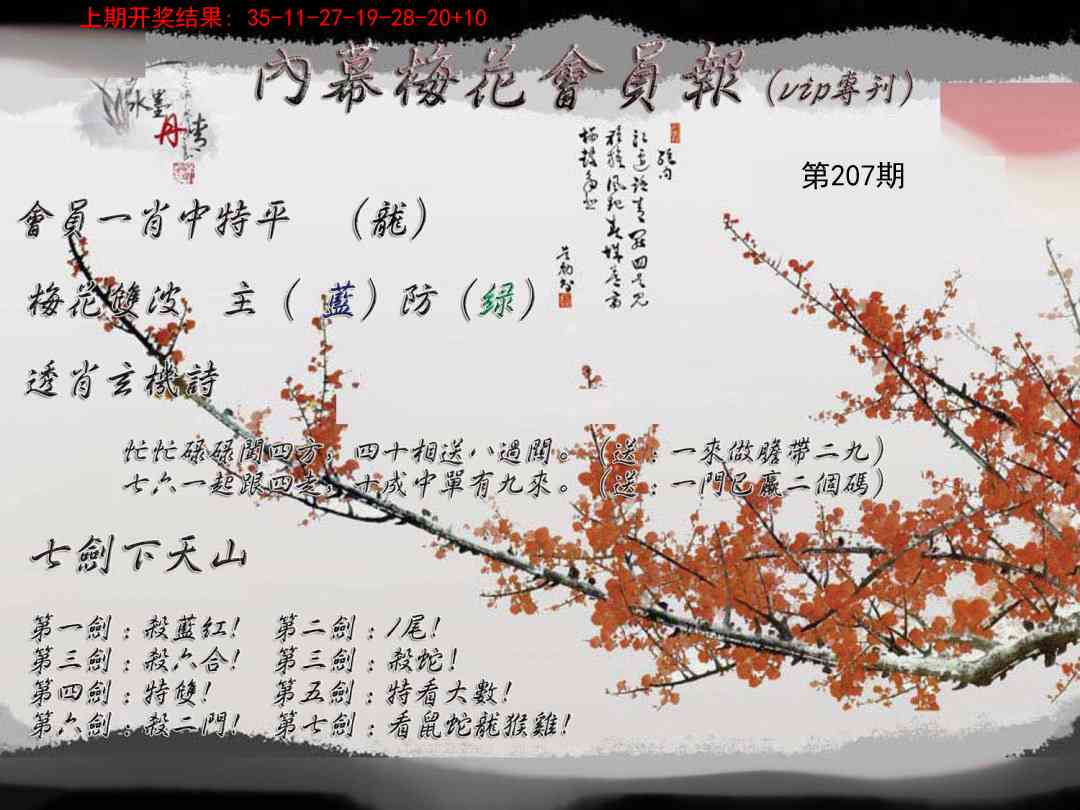 上期开奖结果: 35-11-27-19-28-20+10
內幕梅花會員報(vip專刊)
水墨
丹青
第207期
會員一肖中特平 (龍)
梅花雙波 主(藍)防(緑)
透肖玄機詩
忙忙碌碌闖四方,四十相送八過關。(送:一來做膽帶二九)
七六一起跟四走,十成中單有九來。(送:一門已贏二個碼)
七劍下天山
第一劍:殺藍紅! 第二劍:1尾!
第三劍:殺六合! 第三劍:殺蛇!
第四劍:特雙! 第五劍:特看大數!
第六劍:殺二門! 第七劍:看鼠蛇龍猴雞!